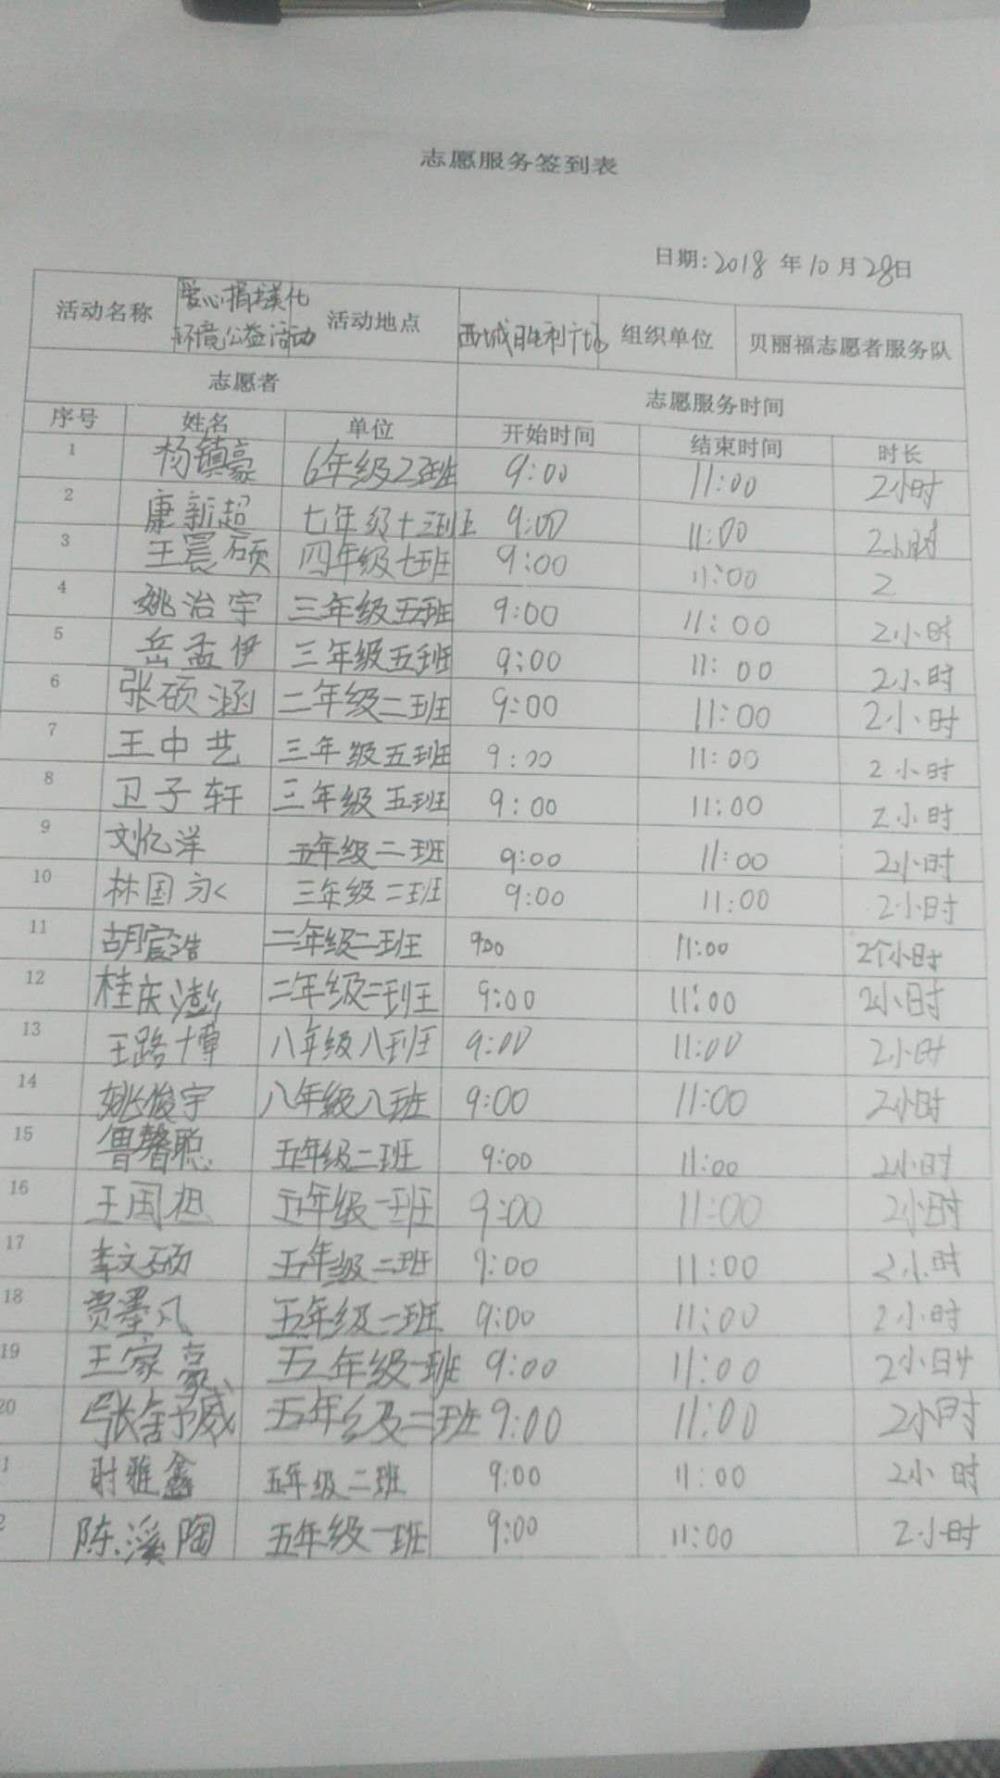 志愿服务签到表
日期:2018年10月28日
活动名称 爱心捐 美化 环境公益活动 活动地点 西城胜利广场 组织单位 贝丽福志愿者服务队
志愿者 志愿服务时间
序号 姓名 单位 开始时间 结束时间 时长
1 杨镇豪 6年级2班 9:00 11:00 2小时
2 康新超 七年级十三班 9:00 11:00 2小时
3 王震硕 四年级七班 9:00 11:00 2
4 姚治宇 三年级五班 9:00 11:00 2小时
5 岳孟伊 三年级五班 9:00 11:00 2小时
6 张硕涵 二年级二班 9:00 11:00 2小时
7 王中艺 三年级五班 9:00 11:00 2小时
8 卫子轩 三年级五班 9:00 11:00 2小时
9 刘亿洋 五年级二班 9:00 11:00 2小时
10 林国永 三年级二班 9:00 11:00 2小时
11 胡宸浩 二年级二班 900 11:00 2个小时
12 桂庆澎 二年级二班 9:00 11:00 2小时
13 王路博 八年级八班 9:00 11:00 2小时
14 姚俊宇 八年级八班 9:00 11:00 2小时
15 鲁馨聪 五年级二班 9:00 11:00 2小时
16 王国 五年级一班 9:00 11:00 2小时
17 李文硕 五年级二班 9:00 11:00 2小时
18 贾墨凡 五年级一班 9:00 11:00 2小时
19 王家豪 五年级一班 9:00 11:00 2小时
20 张舒威 五年级二班 9:00 11:00 2小时
1 时雅鑫 五年级二班 9:00 11:00 2小时
2 陈溪陶 五年级一班 9:00 11:00 2小时